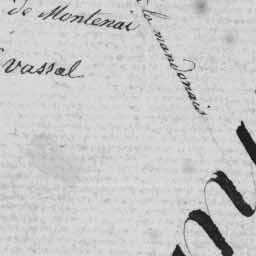 de Montenai
vassal
la mandonais